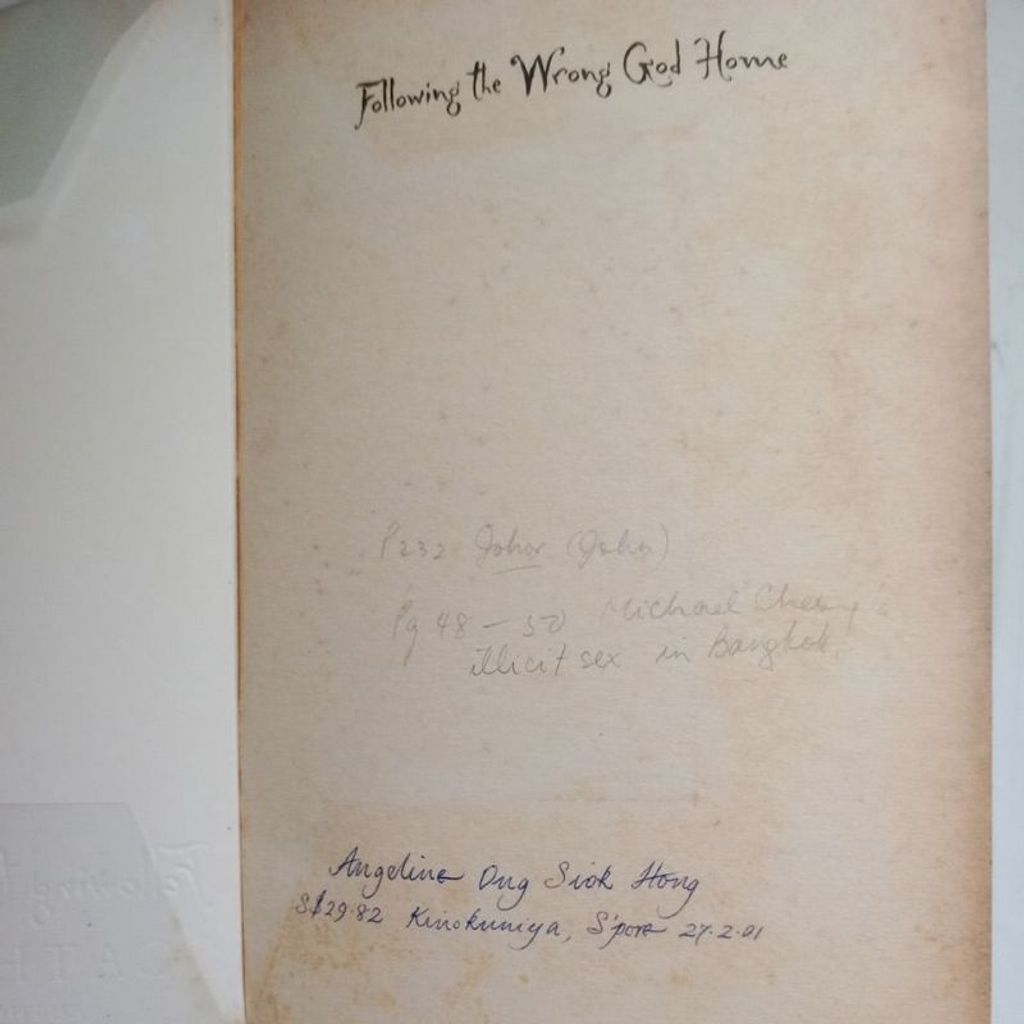 Following the Wrong God Home
P232 Johor (John)
Pg 48 - 50 Michael Cheong's
illicit sex in Bangkok.
Angeline Ong Siok Hong
S$29.82 Kinokuniya, S'pore 27.2.01